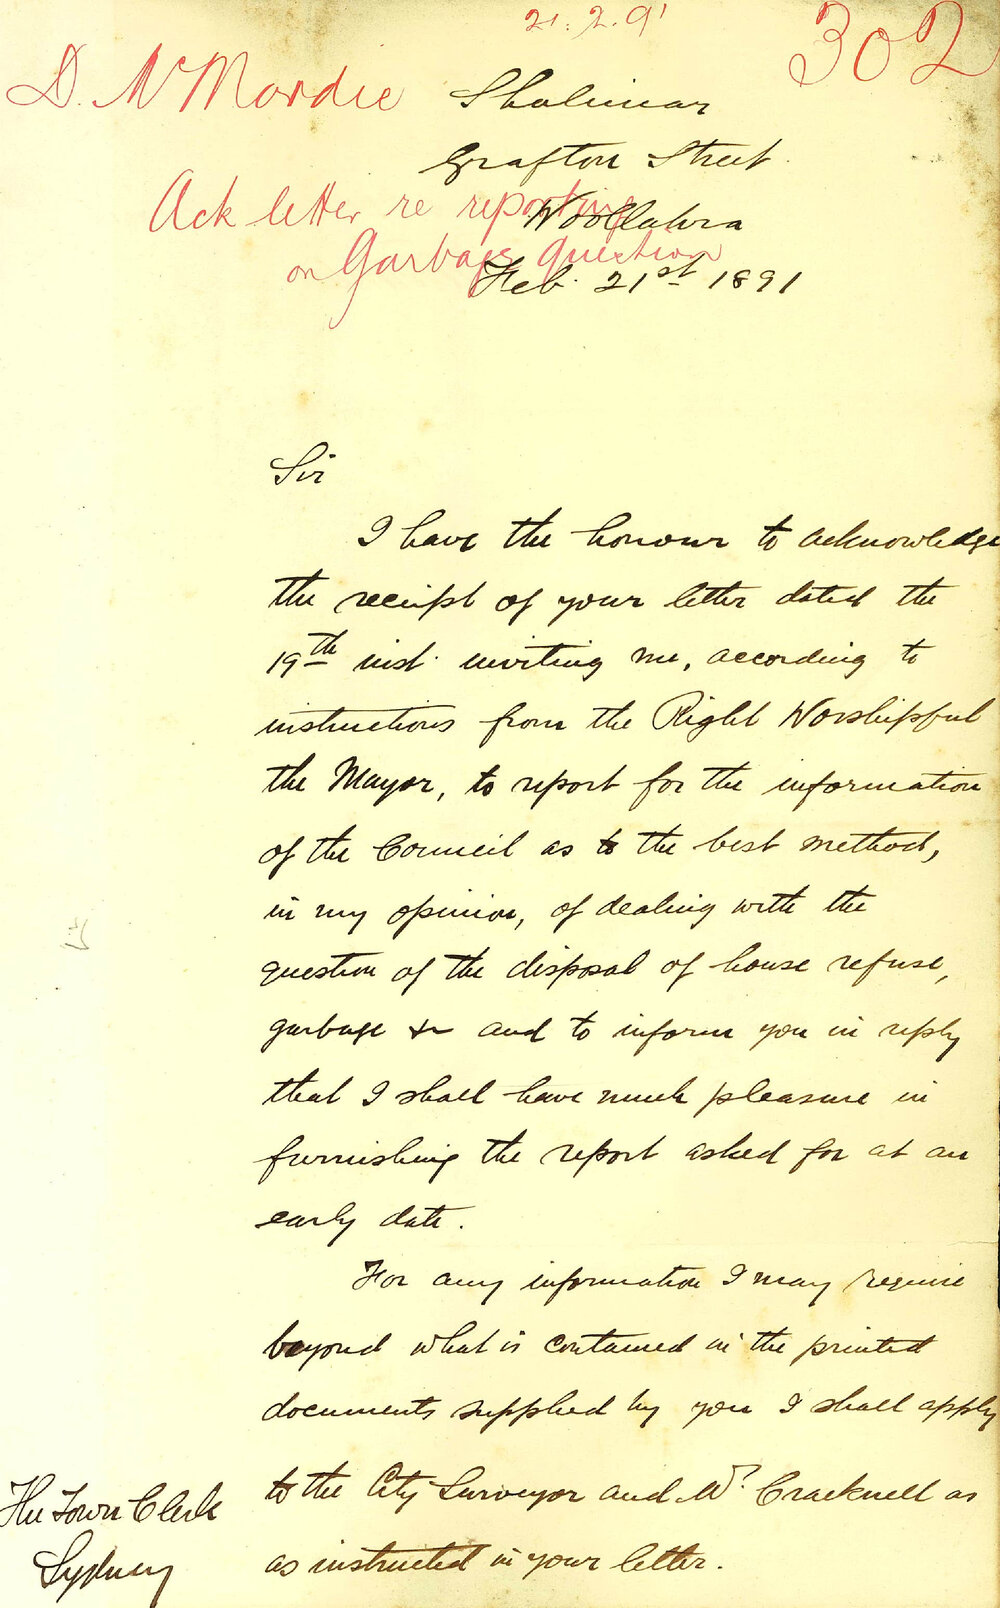 21.2.91
302
D. McMordie
Shalimar
Grafton Street.
Ack letter re reporting
Woollahra
on Garbage question
Feb. 21st 1891
Sir
I have the honour to acknowledge
the receipt of your letter dated the
19th inst. inviting me, according to
instructions from the Right Worshipful
the Mayor, to report for the information
of the Council as to the best method,
in my opinion, of dealing with the
question of the disposal of house refuse,
garbage &c and to inform you in reply
that I shall have much pleasure in
furnishing the report asked for at an
early date.
For any information I may require
beyond what is contained in the printed
documents supplied by you I shall apply
to the City Surveyor and Mr. Cracknell as
as instructed in your letter.
The Town Clerk
Sydney